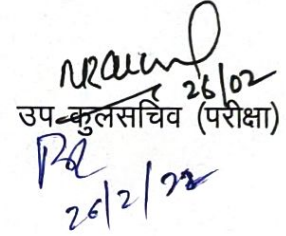 26/02
उप-कुलसचिव (परीक्षा)
26/2/22